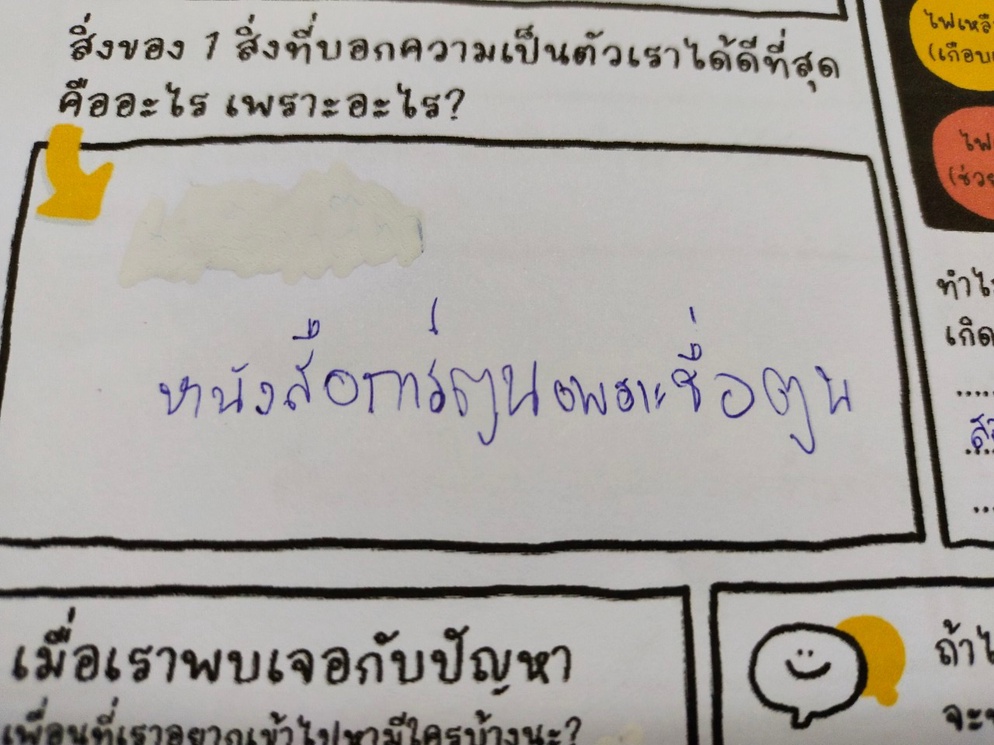 สิ่งของ 1 สิ่งที่บอกความเป็นตัวเราได้ดีที่สุด
คืออะไร เพราะอะไร?
หนังสือการ์ตูนเพราะชื่อตูน
เมื่อเราพบเจอกับปัญหา
เพื่อนที่เราอยากเข้าไปหามีใครบ้างนะ?
ไฟเหลื
(เกือบ
ไฟ
(ช่วย
ทำไ
เกิด
ถ้าไ
จะ